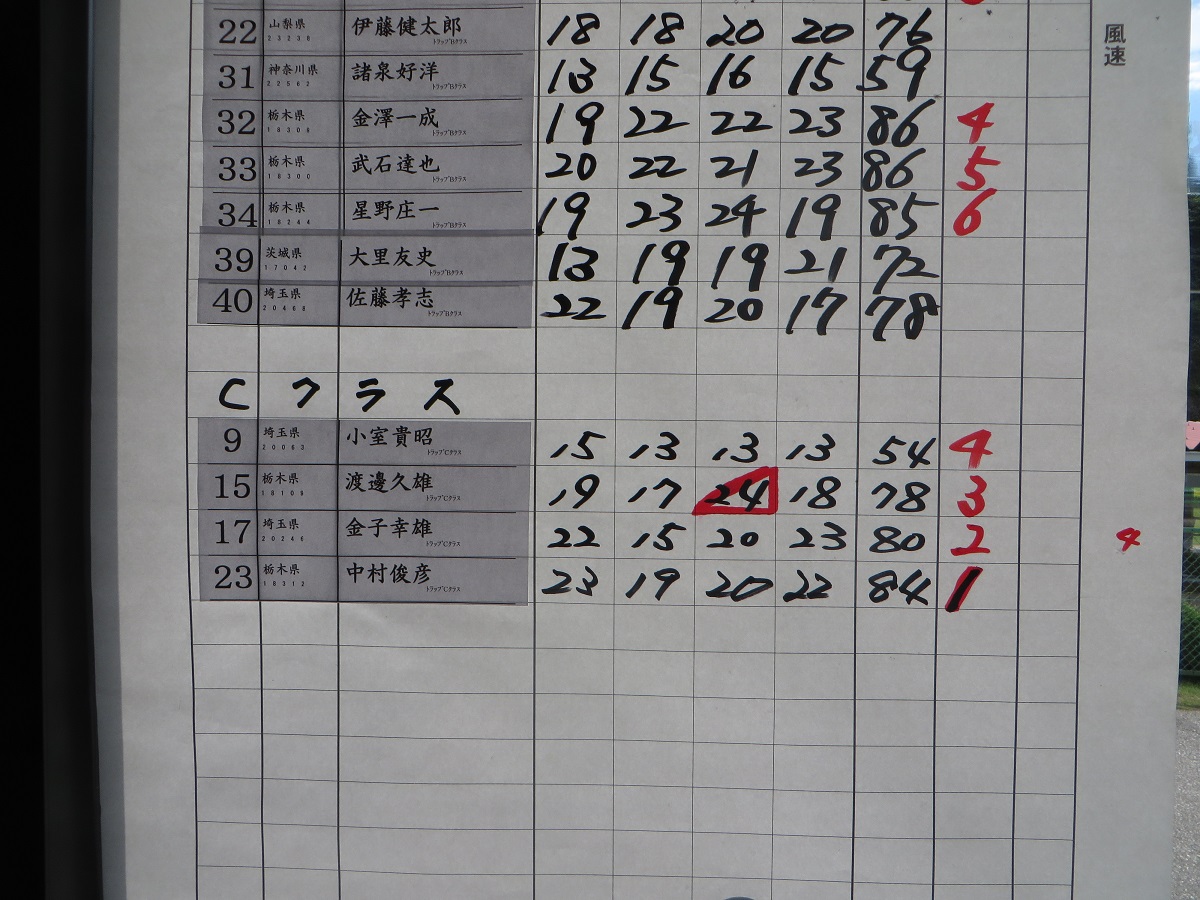 22 山梨県 23238 伊藤健太郎 トラップBクラス 18 18 20 20 76
31 神奈川県 22562 諸泉好洋 トラップBクラス 13 15 16 15 59
32 栃木県 18308 金澤一成 トラップBクラス 19 22 22 23 86 4
33 栃木県 18300 武石達也 トラップBクラス 20 22 21 23 86 5
34 栃木県 18244 星野庄一 トラップBクラス 19 23 24 19 85 6
39 茨城県 17042 大里友史 トラップBクラス 13 19 19 21 72
40 埼玉県 20468 佐藤孝志 トラップBクラス 22 19 20 17 78
Cクラス
9 埼玉県 20063 小室貴昭 トラップCクラス 15 13 13 13 54 4
15 栃木県 18109 渡邊久雄 トラップCクラス 19 17 24 18 78 3
17 埼玉県 20246 金子幸雄 トラップCクラス 22 15 20 23 80 2
23 栃木県 18312 中村俊彦 トラップCクラス 23 19 20 22 84 1
風速